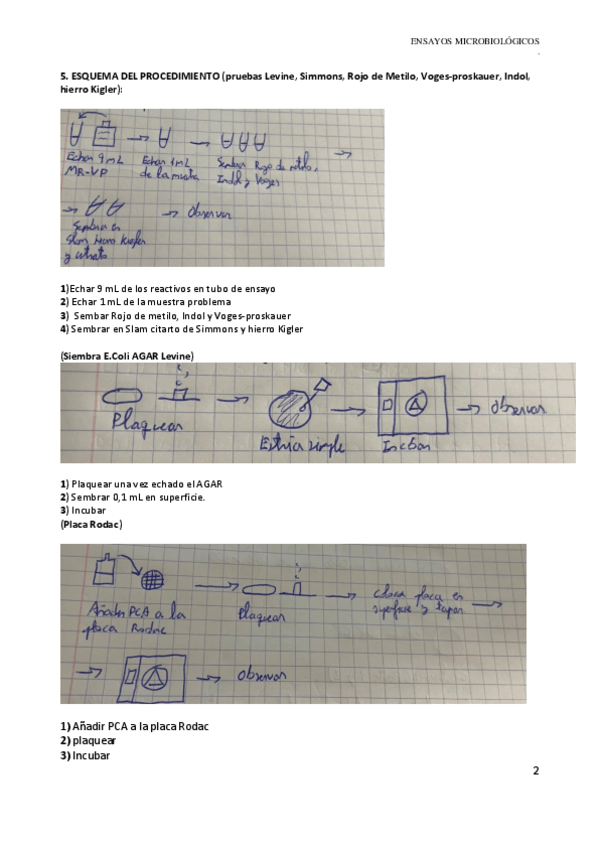 ENSAYOS MICROBIOLÓGICOS
.
5. ESQUEMA DEL PROCEDIMIENTO (pruebas Levine, Simmons, Rojo de Metilo, Voges-proskauer, Indol,
hierro Kigler):
Echar 9 mL
MR-VP
Echar 1 mL
de la muestra
Sembrar Rojo de metilo,
Indol y Voges
Sembrar en
Slam hierro Kigler
y citrato
Observar
1)Echar 9 mL de los reactivos en tubo de ensayo
2) Echar 1 mL de la muestra problema
3) Sembar Rojo de metilo, Indol y Voges-proskauer
4) Sembrar en Slam citarto de Simmons y hierro Kigler
(Siembra E.Coli AGAR Levine)
Plaquear
Estría simple
Incubar
observar
1) Plaquear una vez echado el AGAR
2) Sembrar 0,1 mL en superficie.
3) Incubar
(Placa Rodac)
Añadir PCA a la
placa Rodac
plaquear
placa en
superficie y tapar
observar
1) Añadir PCA a la placa Rodac
2) plaquear
3) Incubar
2